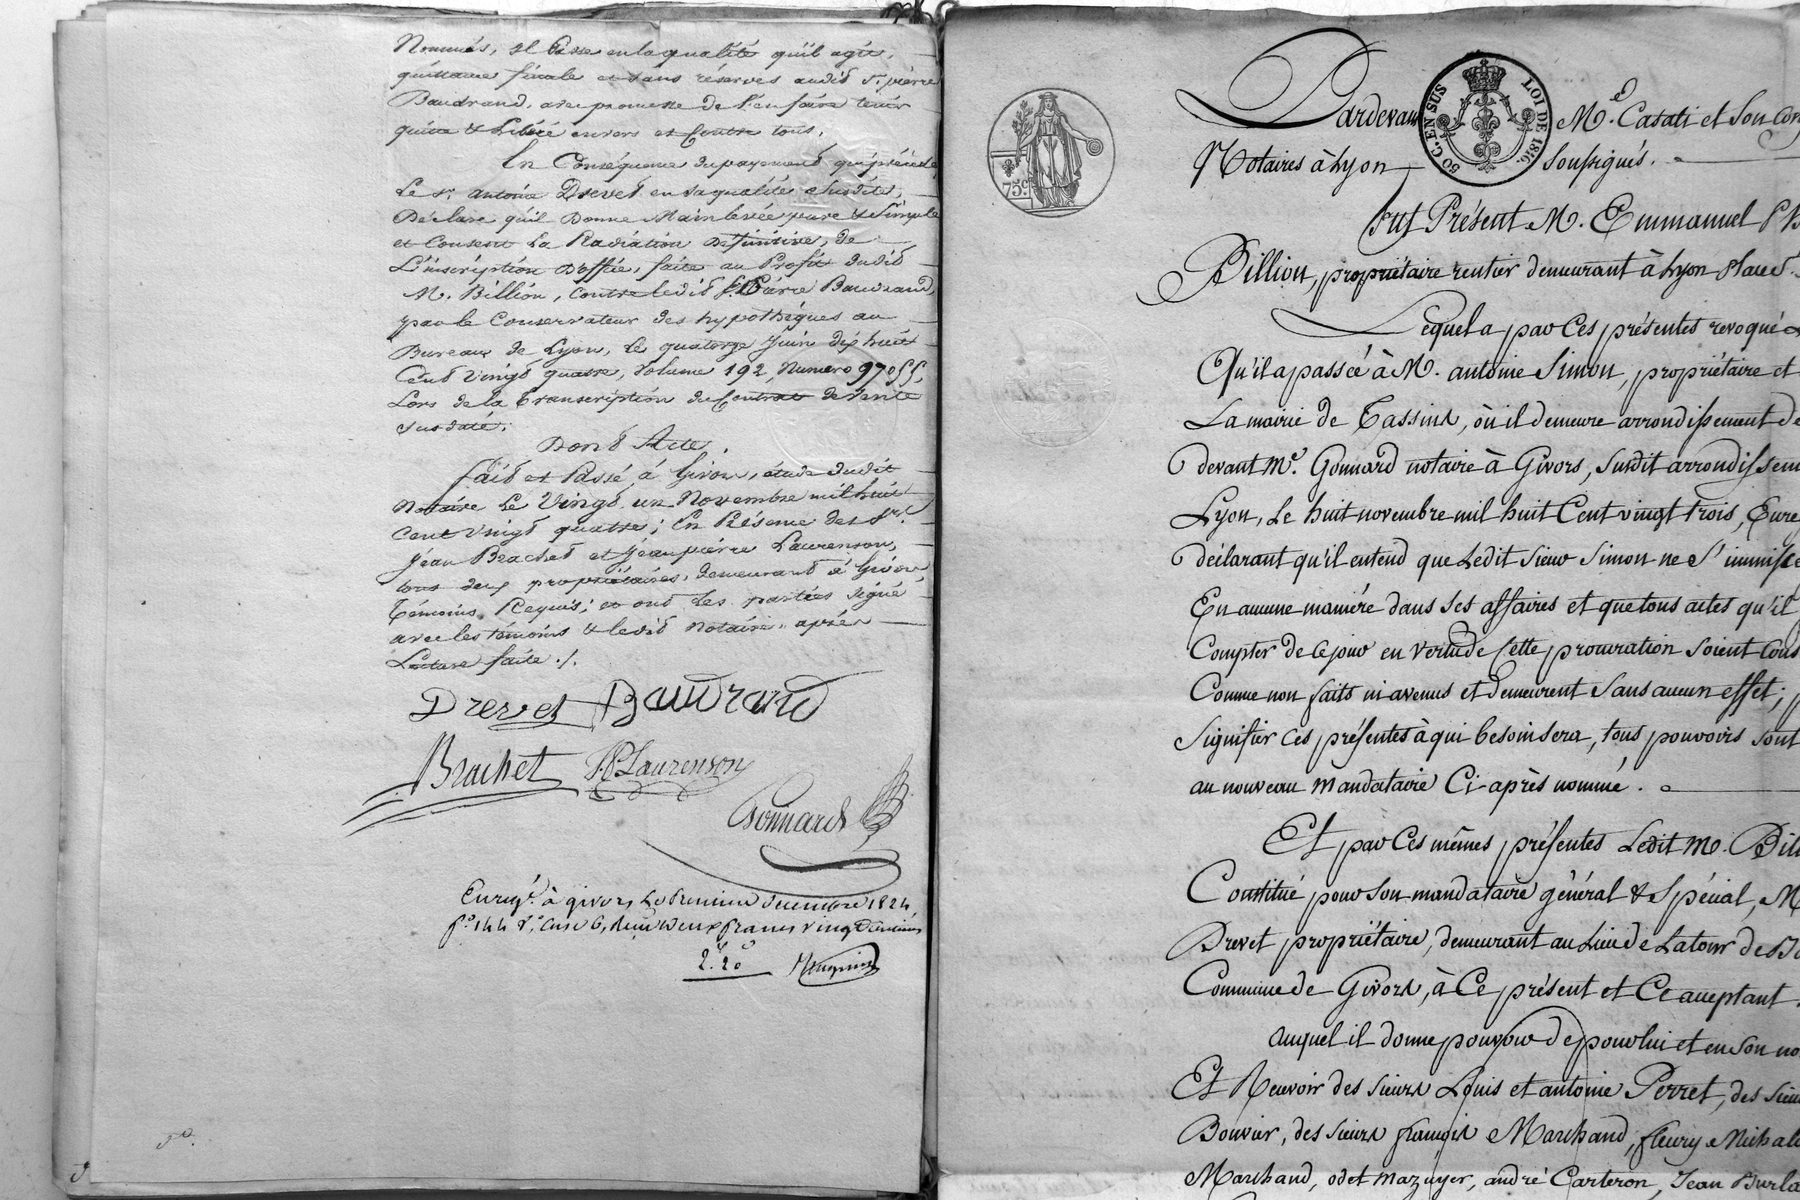 Nommés, il Passe en la qualité qu'il agit,
quittance finale et sans réserves audit Sr. pierre
Baudrand, avec promesse de l'en faire tenir
quitte & Libéré envers et Contre tous.
En Conséquence du payement qui précède
Le Sr. antoine Drevet en sa qualité susdite,
Déclare qu'il Donne Mainlevée pure & Simple
et Consent La Radiation Définitive, de
L'inscription D'office, faite au Profit dudit
M. Billion, Contre ledit Sr. Pierre Baudrand,
par le Conservateur des hypothèques au
Bureau de Lyon, Le quatorze juin dix huit
Cent vingt quatre, Volume 192, Numéro 97055,
Lors de la transcription du Contrat de Vente
susdaté.
Dont Acte.
fait et Passé à Givors, étude dudit
Notaire Le Vingt un Novembre mil huit
Cent vingt quatre; En Présence des Srs.
Jean Brachet et Jean pierre Laurenson,
tous deux propriétaires, demeurant à Givors,
témoins Requis; et ont les parties signé
avec les témoins & ledit Notaire, après
Lecture faite ./.
Drevet Baudrand
Brachet J.P. Laurenson
Gonnard
Enregé. à givors Le Premier décembre 1824
fo. 144 vo. Case 6, reçu deux francs vingt centimes
2.f 20c
75c
80 C. EN SUS LOI DE 1816.
Pardevant Me. Casati et Son Con
Notaires à Lyon Soussignés.
Fut Présent M. Emmanuel
Billion, propriétaire rentier demeurant à Lyon place
Lequel a par Ces présentes revoqué
Qu'il a passée à M. antoine Simon, propriétaire et
La mairie de Tassins, où il demeure arrondissement de
devant Me. Gonnard notaire à Givors, susdit arrondissem
Lyon, Le huit novembre mil huit Cent vingt trois, Enre
déclarant qu'il entend que Ledit Sieur Simon ne S'immisce
En aucune manière dans Ses affaires et que tous actes qu'il
Compter de ce jour en vertu de Cette procuration soient
Comme non faits ni avenus et demeurent Sans aucun effet;
Signifier Ces présentes à qui besoin sera, tous pouvoirs sont
au nouveau mandataire Ci-après nommé.
Et par Ces mêmes présentes Ledit M. Bill
Constitué pour Son mandataire général & Spécial, M
Drevet propriétaire, demeurant au Lieu de Latour de
Commune de Givors, à Ce présent et Ce acceptant
auquel il donne pouvoir de pour lui et en Son no
Et Recevoir des sieurs Louis et antoine Perret, des sieu
Bouvier, des sieurs françois Marchand, fleury Michal
Marchand, odet mazuyer, andré Carteron, Jean Burla